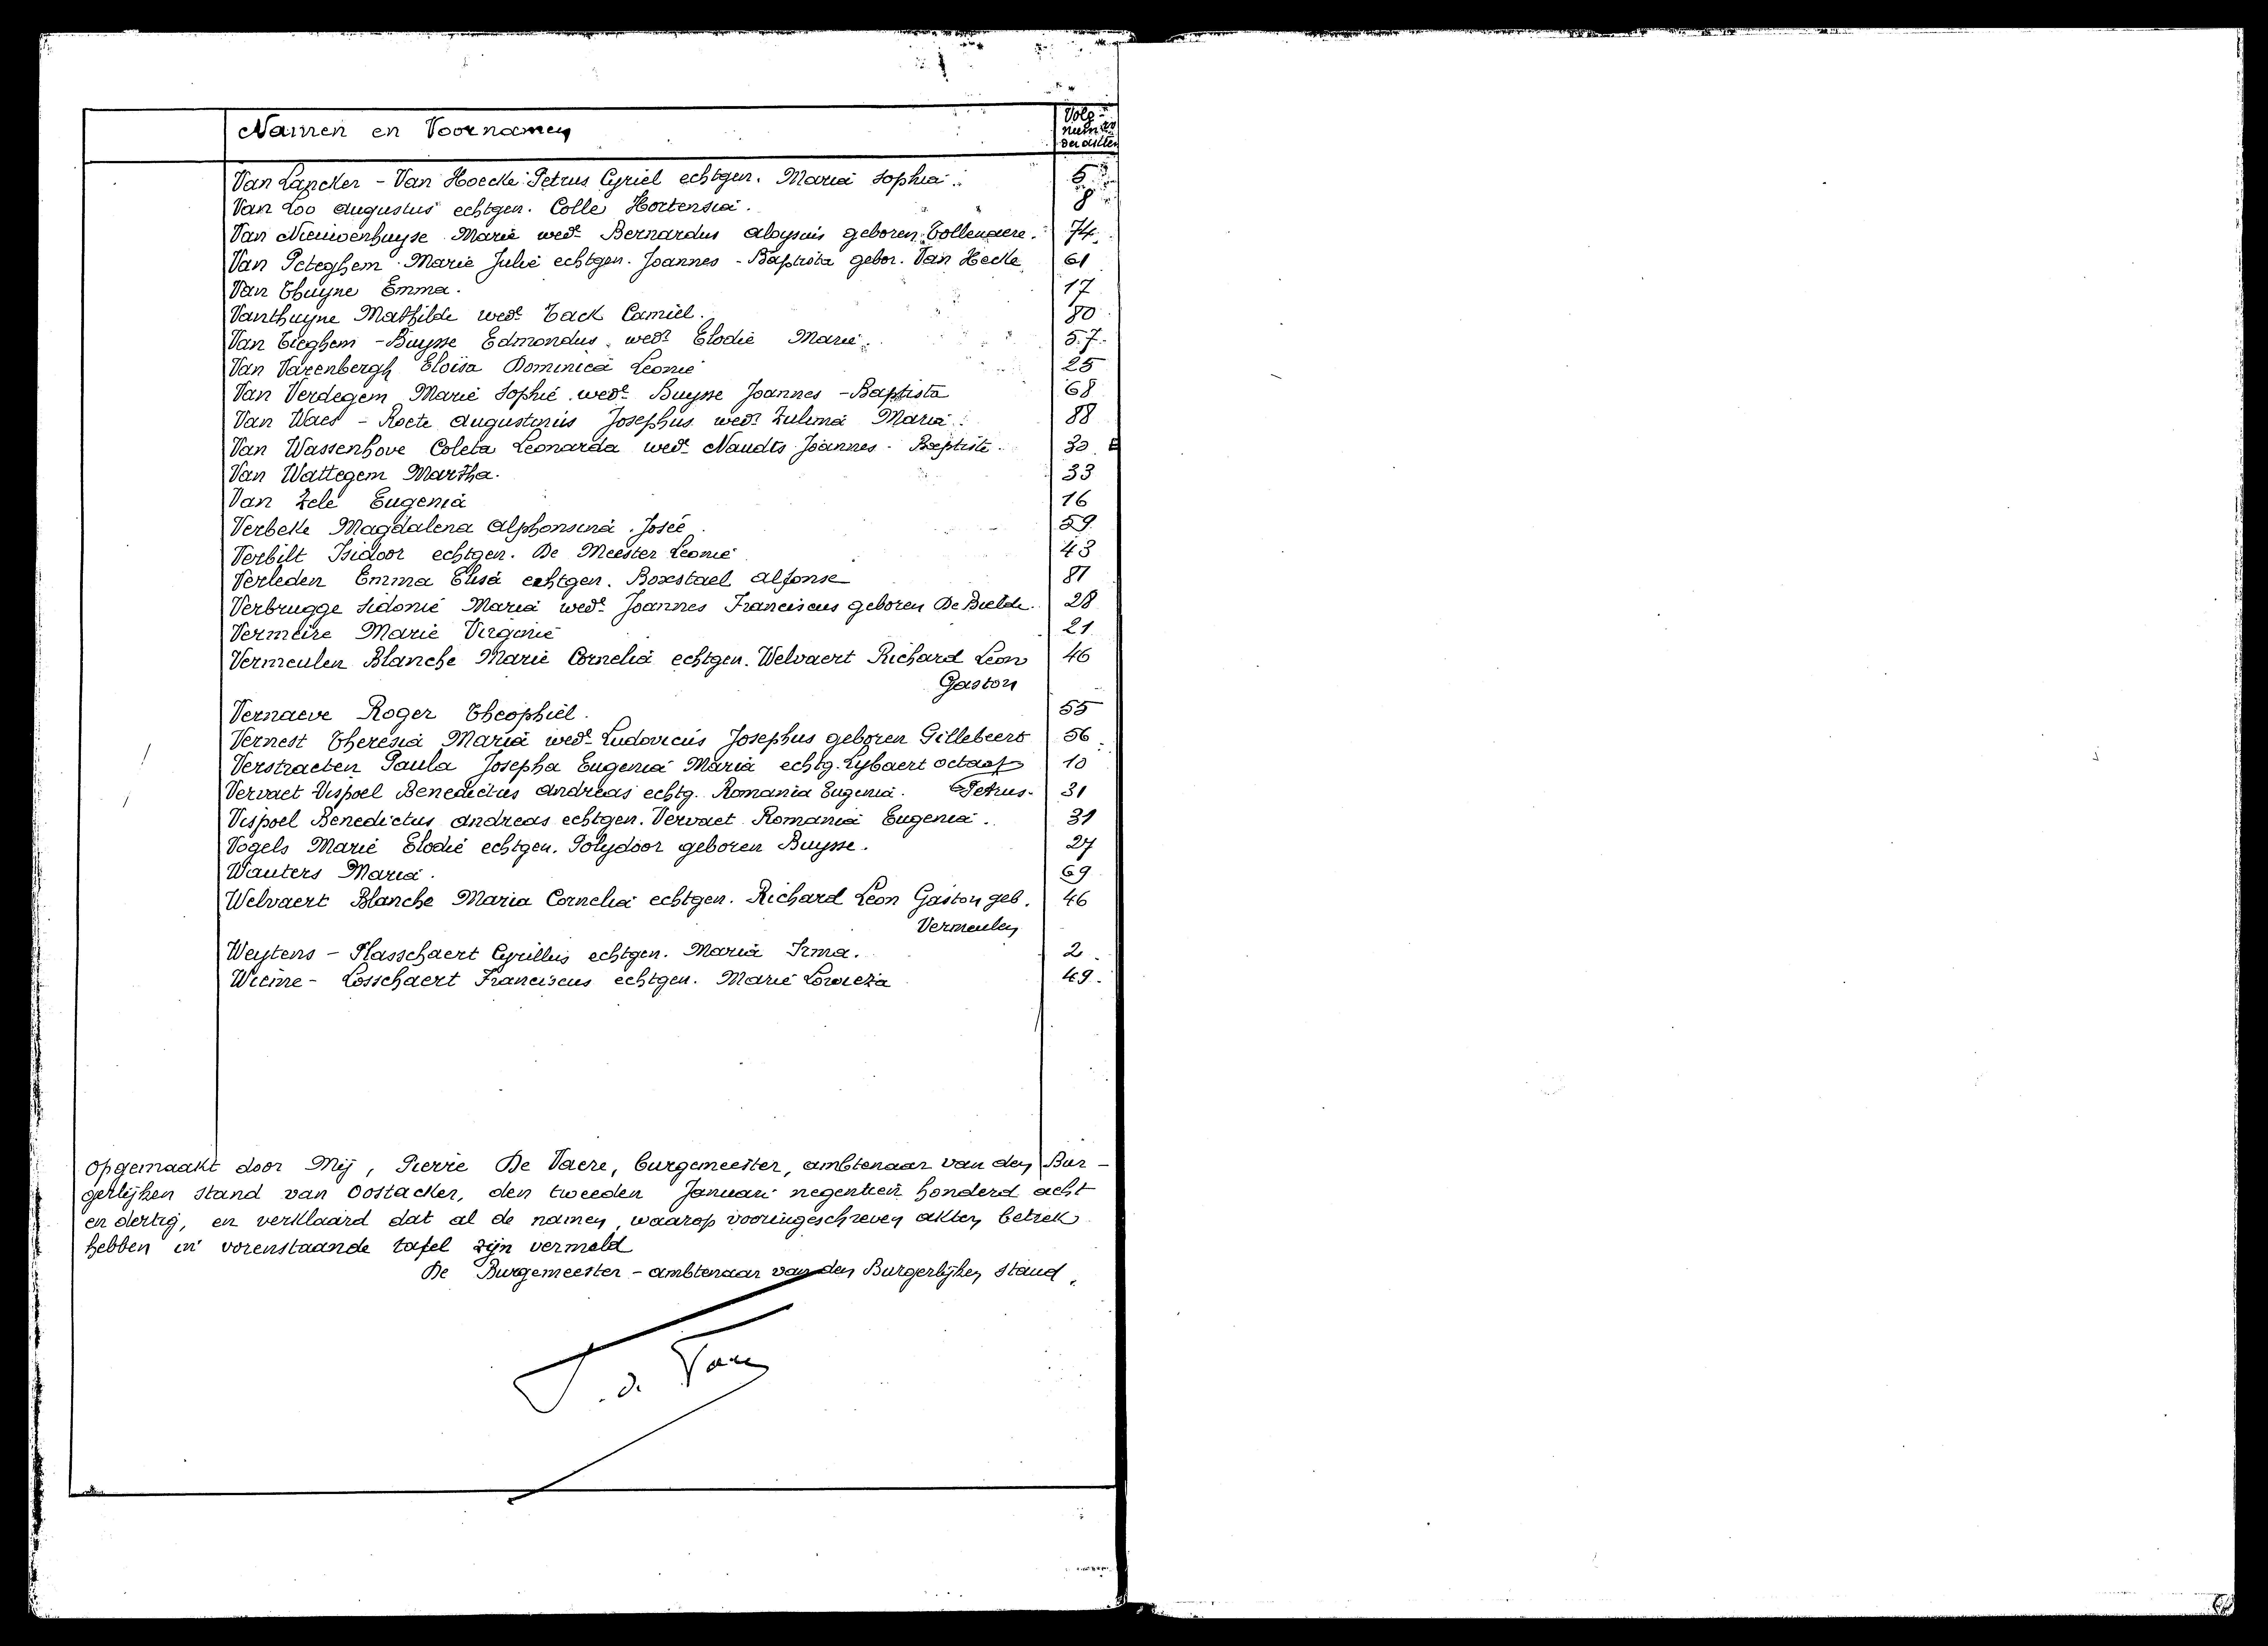 Namen en Voornamen Volg-
num[er]s
der akten
Van Lancker - Van Hoecke Petrus Cyriel echtgen. Maria Sophia. 5
Van Loo Augustus echtgen. Colle Hortensia. 8
Van Nieuwenhuyse Marie wede Bernardus Aloysius geboren Tollenaere. 74
Van Peteghem Marie Julie echtgen. Joannes - Baptista gebor. Van Hecke 61
Van Thuyne Emma. 17
Vanthuyne Mathilde wede Tack Camiel. 80
Van Tieghem - Buysse Edmondus wedr Elodie Marie. 57.
Van Varenbergh Eloïsa Dominica Leonie 25
Van Verdegem Marie Sophie wede Buysse Joannes - Baptista 68
Van Waes - Roete Augustinus Josephus wedr Zulma Maria 88
Van Wassenhove Coleta Leonarda wede Naudts Joannes - Baptiste 30
Van Wattegem Martha. 33
Van Zele Eugenia 16
Verbeke Magdalena Alphonsina Josée 59
Verbilt Isidoor echtgen. De Meester Leonie 43
Verleden Emma Elisa echtgen. Boxstael Alfonse 81
Verbrugge Sidonie Maria wede Joannes Franciscus geboren De Bielde. 28
Vermeire Marie Virginie 21
Vermeulen Blanche Marie Cornelia echtgen. Welvaert Richard Leon 46
Gaston
Vernaeve Roger Theophiel. 55
Vernest Theresia Maria wede Ludovicus Josephus geboren Gillebeert 56
Verstraeten Paula Josepha Eugenia Maria echtg. Lybaert Octaaf 10
Vervaet Vispoel Benedictus Andreas echtg. Romania Eugenia. Petrus. 31
Vispoel Benedictus Andreas echtgen. Vervaet Romania Eugenia. 31
Vogels Marie Elodie echtgen. Polydoor geboren Buysse. 27
Wauters Maria. 69
Welvaert Blanche Maria Cornelia echtgen. Richard Leon Gaston geb. 46
Vermeulen
Weytens - Plasschaert Cyrillus echtgen. Maria Irma. 2
Wieme - Losschaert Franciscus echtgen. Marie Lowieza 49.
Opgemaakt door Mij, Pierre De Vaere, burgemeester, ambtenaar van den Bur-
gerlijken stand van Oostacker, den tweeden Januari negentien honderd acht
en dertig, en verklaard dat al de namen, waarop vooringeschreven akten betrek
hebben in vorenstaande tafel zijn vermeld
De Burgemeester - ambtenaar van den Burgerlijken stand,
P. de Vaere